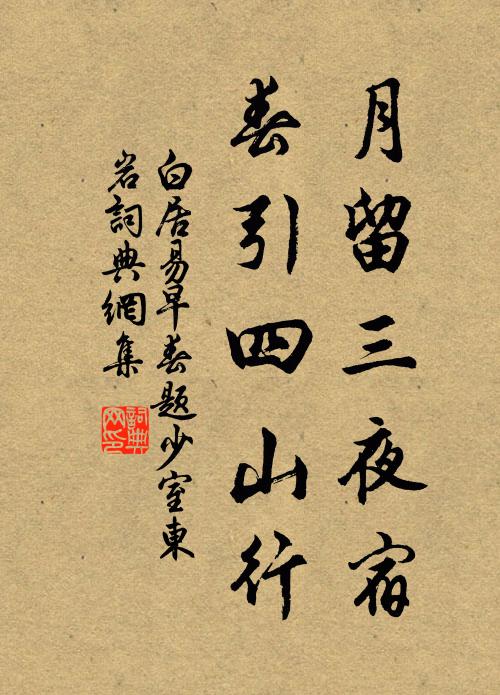 月留三夜宿
春引四山行
白居易早春題少室東
岩詞典網集
詞典网印